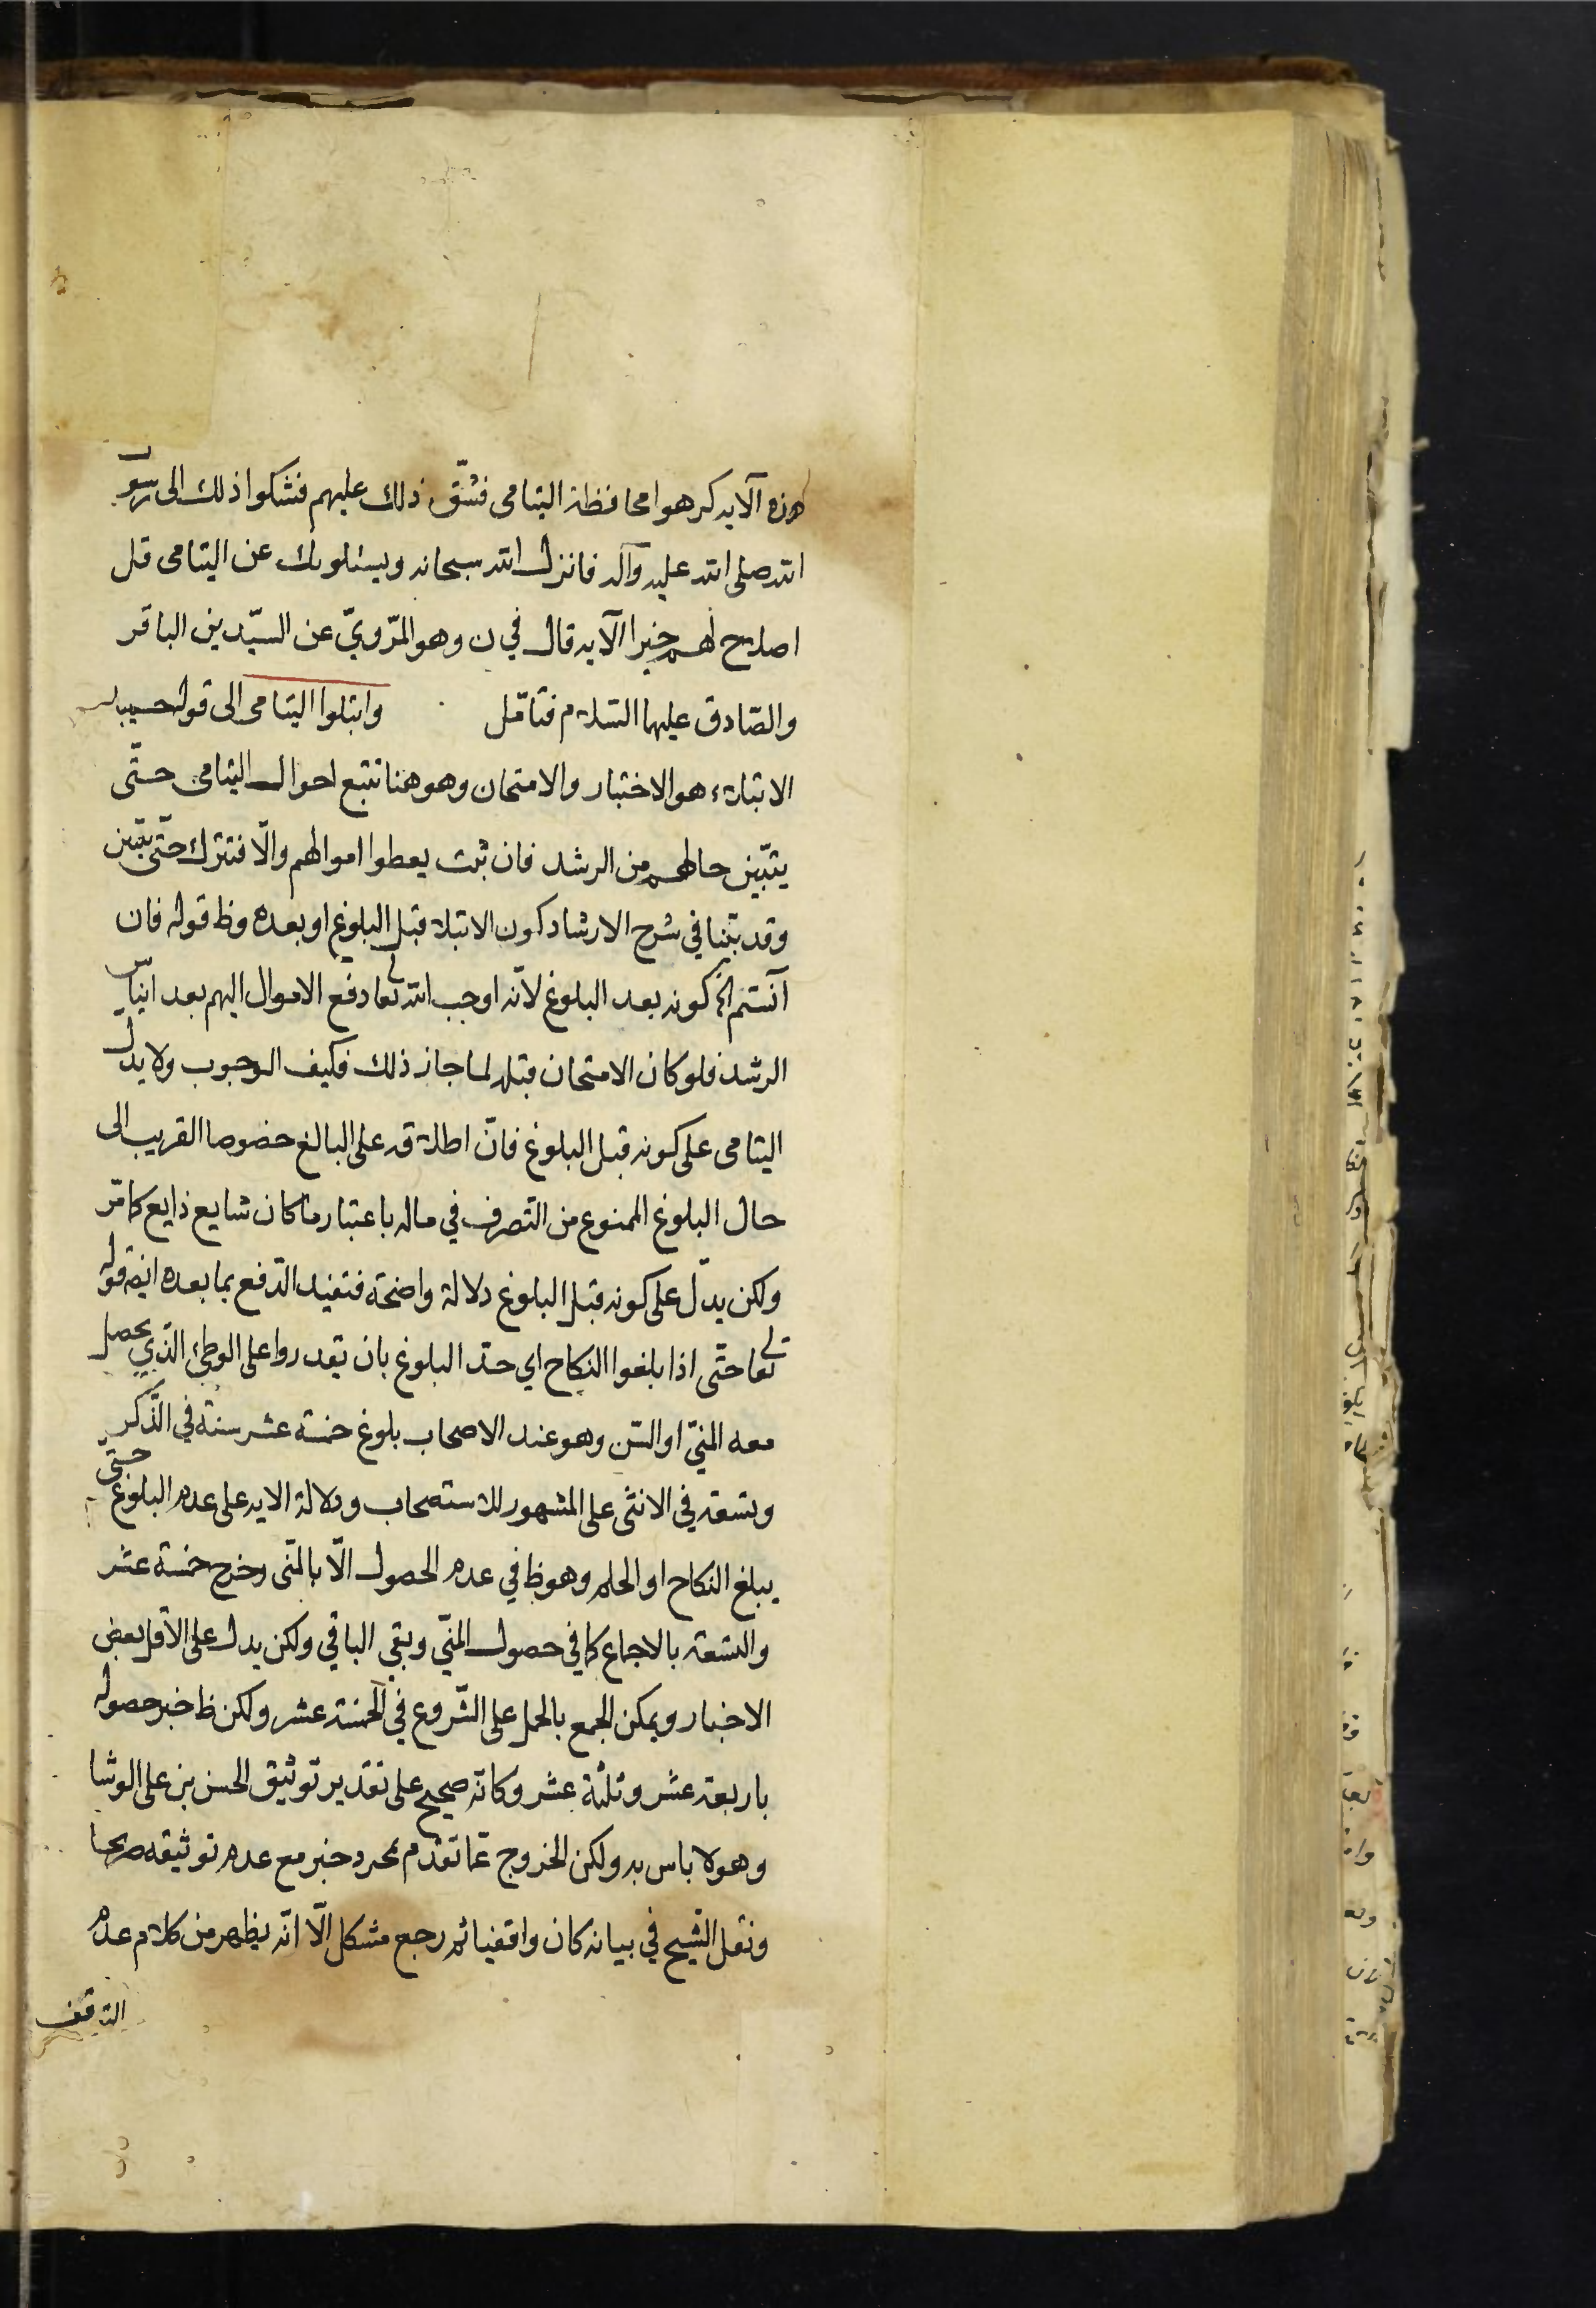 هذه الآيه كرهوا محافظة اليتامى فشقّ ذلك عليهم فشكوا ذلك الى رسول
الله صلى الله عليه وآله فانزل الله سبحانه ويسئلونك عن اليتامى قل
اصلاح لهم خير الآيه قال في ن وهو المرّويّ عن السيّدين الباقر
والصّادق عليهما السّلام فتأمّل وابتلوا اليتامى الى قوله حسيبا
الابتلاء هو الاختبار والامتحان وهو هنا تتبع احوال اليتامى حتّى
يتبّين حالهم من الرشد فان ثبت يعطوا اموالهم والّا فتترك حتّى يتبّين
وقد بيّنا في شرح الارشاد كون الابتلا قبل البلوغ او بعده وظ قوله فان
آنستم الخ كونه بعد البلوغ لانّه اوجب الله تعا لى دفع الاموال اليهم بعد ايناس
الرشد فلو كان الامتحان قبله لما جاز ذلك فكيف الوجوب ولا يدل
اليتامى على كونه قبل البلوغ فانّ اطلاقه على البالغ خصوصا القريب الى
حال البلوغ الممنوع من التصرف في ماله باعتبار ما كان شايع ذايع كما مّر
ولكن يدّل على كونه قبل البلوغ دلالة واضحة فتفيد الدّفع بما بعده ايضا قوله
تعا لى حتّى اذا بلغوا النكاح اي حدّ البلوغ بان يقدروا على الوطئ الّذي يحصل
معه المنيّ او السّن وهو عند الاصحاب بلوغ خمسة عشر سنة في الذّكر
وتسعة في الانثى على المشهور للاستصحاب ودلالة الايه على عدم البلوغ حتّى
يبلغ النكاح او الحلم وهو ظ في عدم الحصول الّا بالمنّى وخرج خمسة عشر
والتسعة بالاجماع كما في حصول المنيّ وبقي الباقي ولكن يدل على الاقل بعض
الاخبار ويمكن الجمع بالحمل على الشّروع في الخمسة عشر ولكن ظ خبر حصوله
باربعة عشر وثلثة عشر وكانّه صحيح على تقدير توثيق الحسن بن على الوشا
وهو لا باس به ولكن الخروج عمّا تقدّم بمجرد خبر مع عدم توثيقه صريحا
ونقل الشّيخ في بيانه كان واقفيا ثم رجع مشكل الّا انّه يظهر من كلام عدم
التوقف